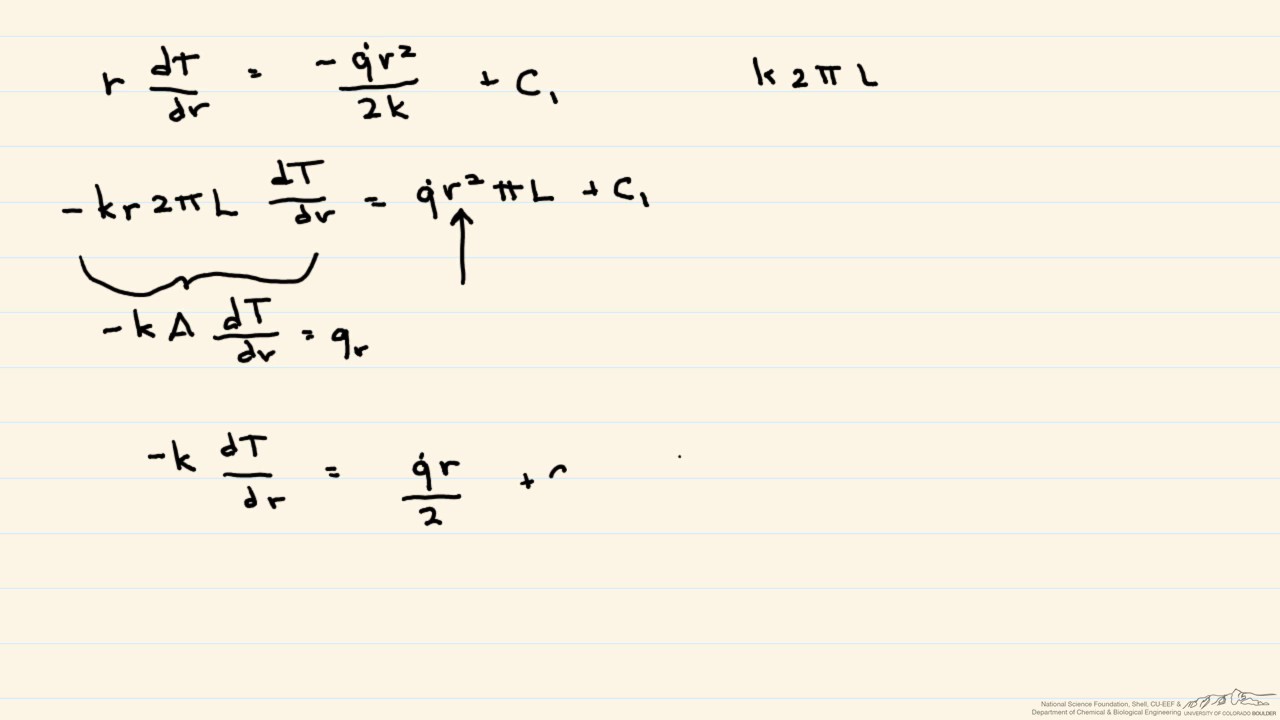 r dT/dr = -q̇r²/2k + C₁
k 2 π L
-kr2πL dT/dr = q̇r²πL + C₁
-kA dT/dr = qᵣ
-k dT/dr = q̇r/2 +
National Science Foundation, Shell, CU-EEF &
Department of Chemical & Biological Engineering UNIVERSITY OF COLORADO BOULDER